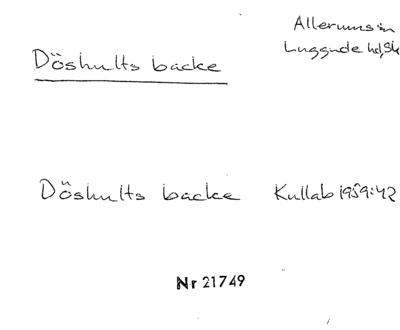 Allerums sn
Luggude hd, Sk
Döshults backe
Döshults backe Kullab 1959:42
Nr 21749